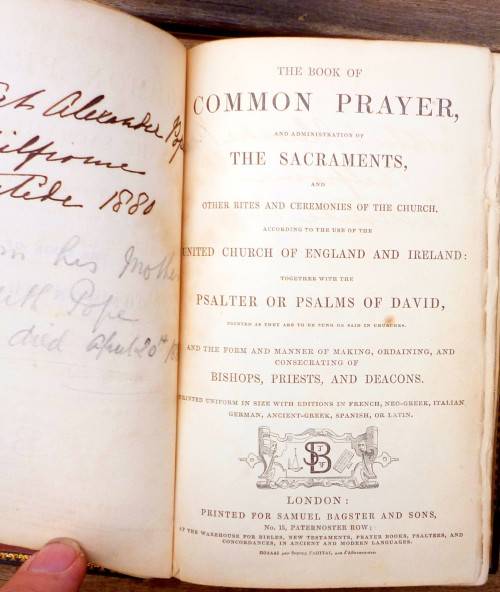 Alexander Pope
1880
his Mother
Pope
died April 20th
THE BOOK OF
COMMON PRAYER,
AND ADMINISTRATION OF
THE SACRAMENTS,
AND
OTHER RITES AND CEREMONIES OF THE CHURCH,
ACCORDING TO THE USE OF THE
UNITED CHURCH OF ENGLAND AND IRELAND:
TOGETHER WITH THE
PSALTER OR PSALMS OF DAVID,
POINTED AS THEY ARE TO BE SUNG OR SAID IN CHURCHES.
AND THE FORM AND MANNER OF MAKING, ORDAINING, AND
CONSECRATING OF
BISHOPS, PRIESTS, AND DEACONS.
PRINTED UNIFORM IN SIZE WITH EDITIONS IN FRENCH, NEO-GREEK, ITALIAN
GERMAN, ANCIENT-GREEK, SPANISH, OR LATIN.
SB
LONDON:
PRINTED FOR SAMUEL BAGSTER AND SONS,
No. 15, PATERNOSTER ROW;
AT THE WAREHOUSE FOR BIBLES, NEW TESTAMENTS, PRAYER BOOKS, PSALTERS, AND
CONCORDANCES, IN ANCIENT AND MODERN LANGUAGES.